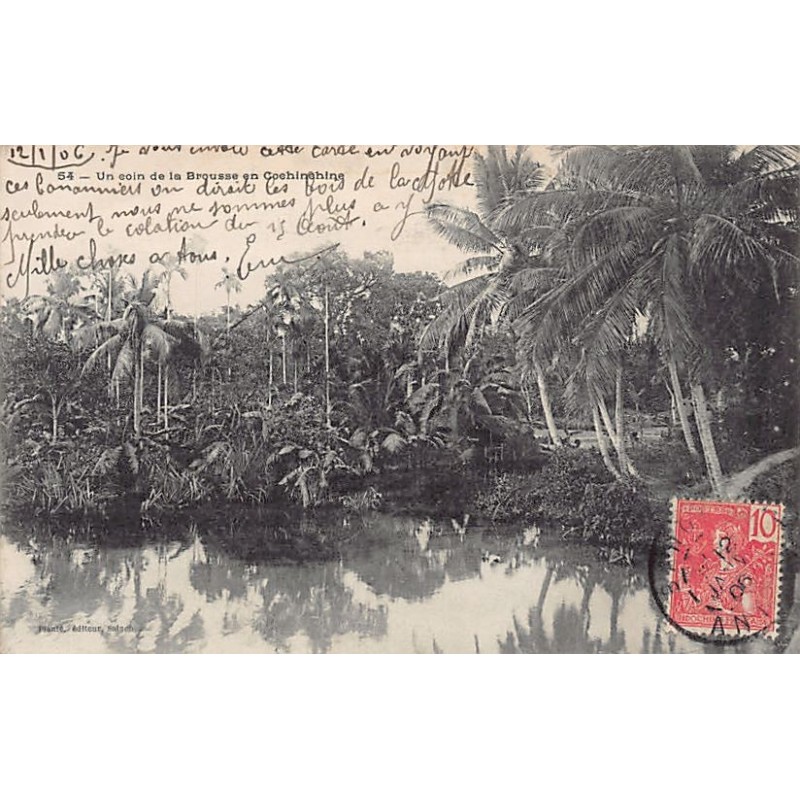 12/1/06 Je vous envoie cette carte en voyant
54 — Un coin de la Brousse en Cochinchine
ces bananniers on dirait les bois de la
seulement nous ne sommes plus a y
prendre la colation du 15 Août
Mille choses a tous
10
Planté, éditeur, Saïgon